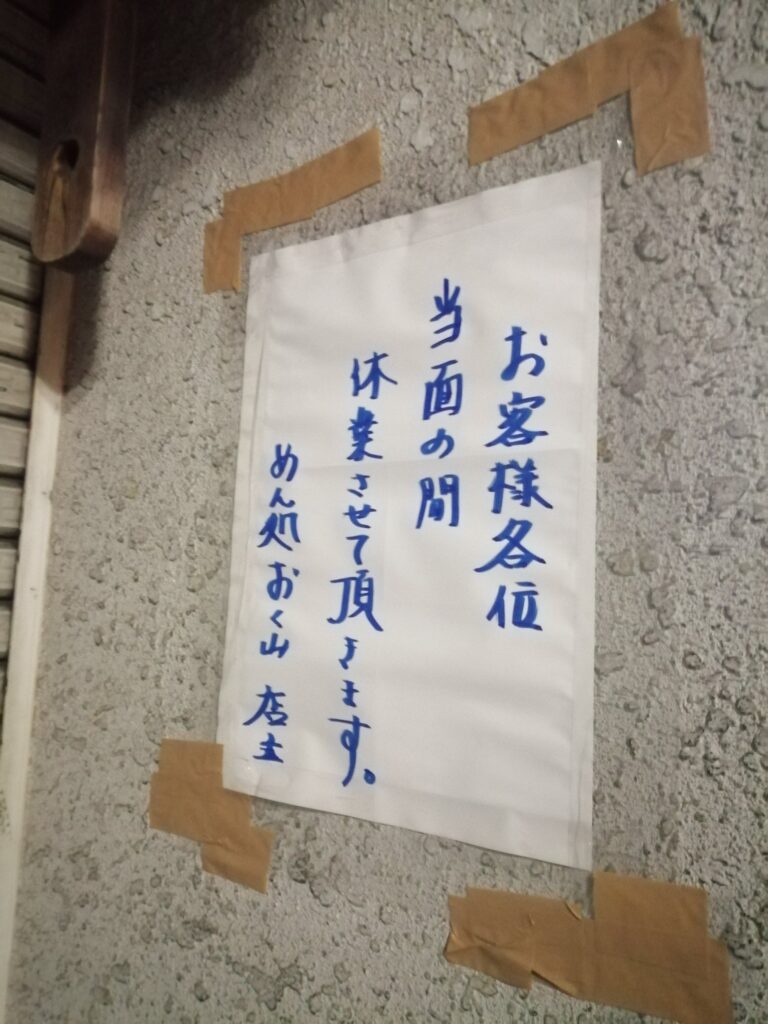 お客様各位
当面の間
休業させて頂きます。
めん処おく山 店主